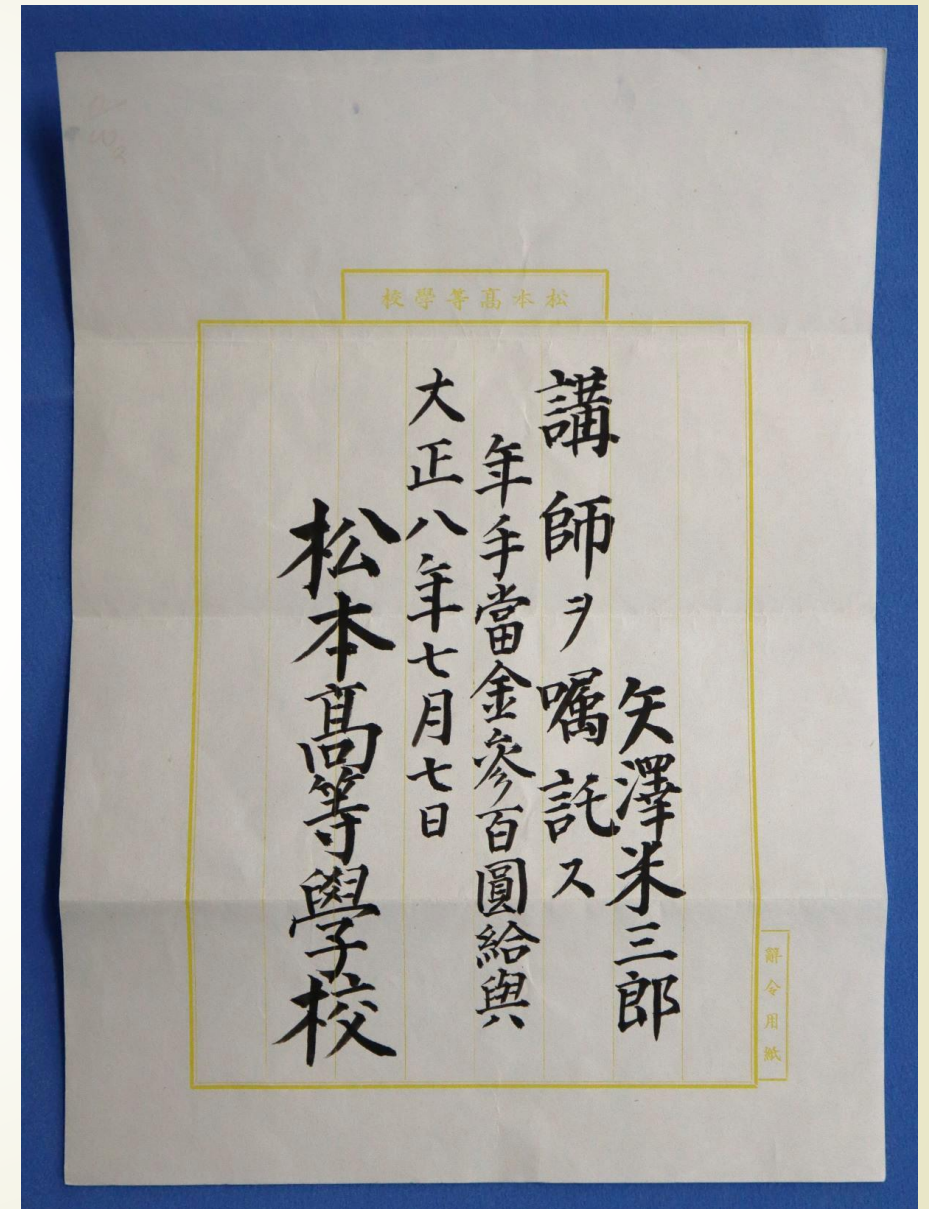 松本髙等學校
矢澤米三郎
講師ヲ嘱託ス
年手當金參百圓給與
大正八年七月七日
松本髙等學校
辭令用紙